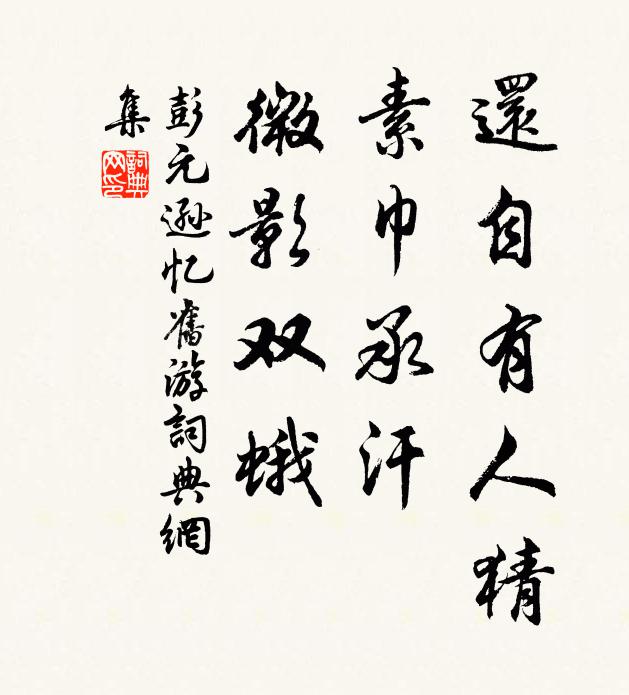 還自有人猜
素巾承汗
微影双蛾
彭元逊忆舊游詞典網
集
詞典网印